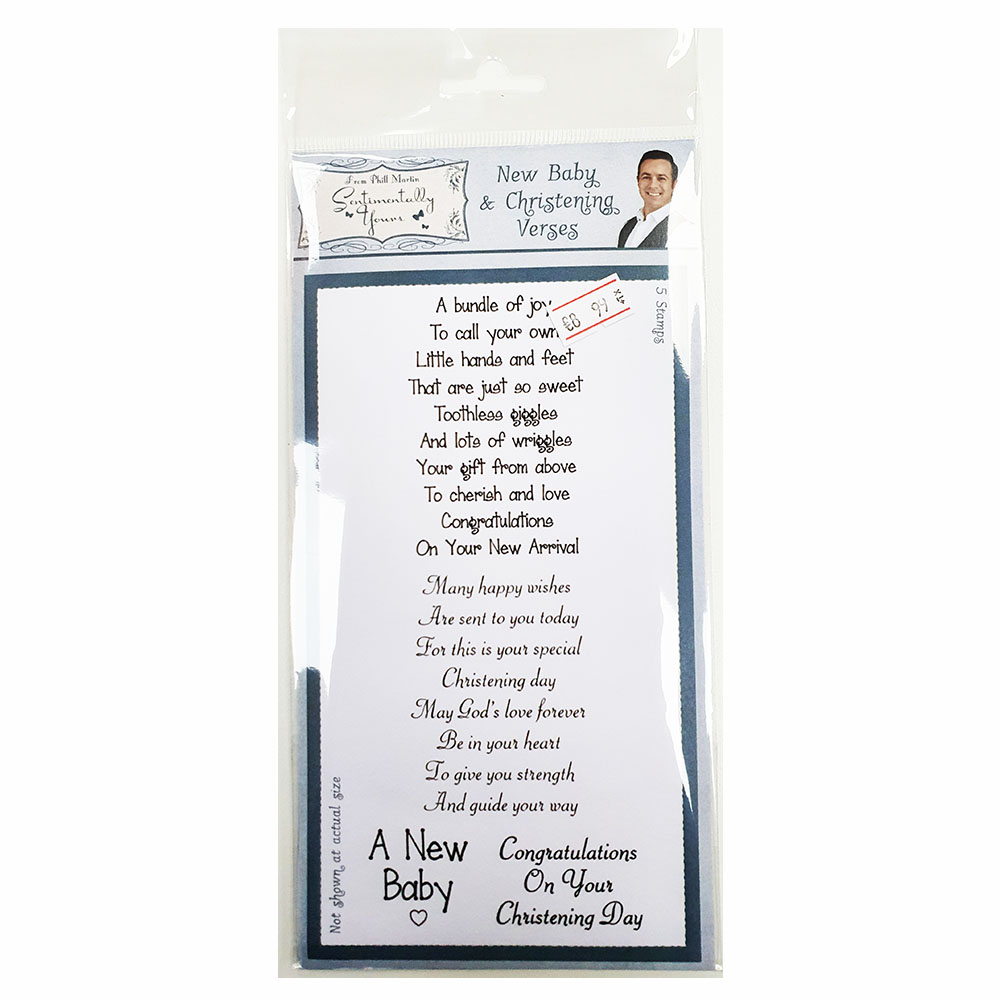 From Phill Martin
Sentimentally
Yours
New Baby
& Christening
Verses
5 Stamps
£8 99
A bundle of joy
To call your own
Little hands and feet
That are just so sweet
Toothless giggles
And lots of wriggles
Your gift from above
To cherish and love
Congratulations
On Your New Arrival
Many happy wishes
Are sent to you today
For this is your special
Christening day
May God's love forever
Be in your heart
To give you strength
And guide your way
A New
Baby
Congratulations
On Your
Christening Day
Not shown at actual size